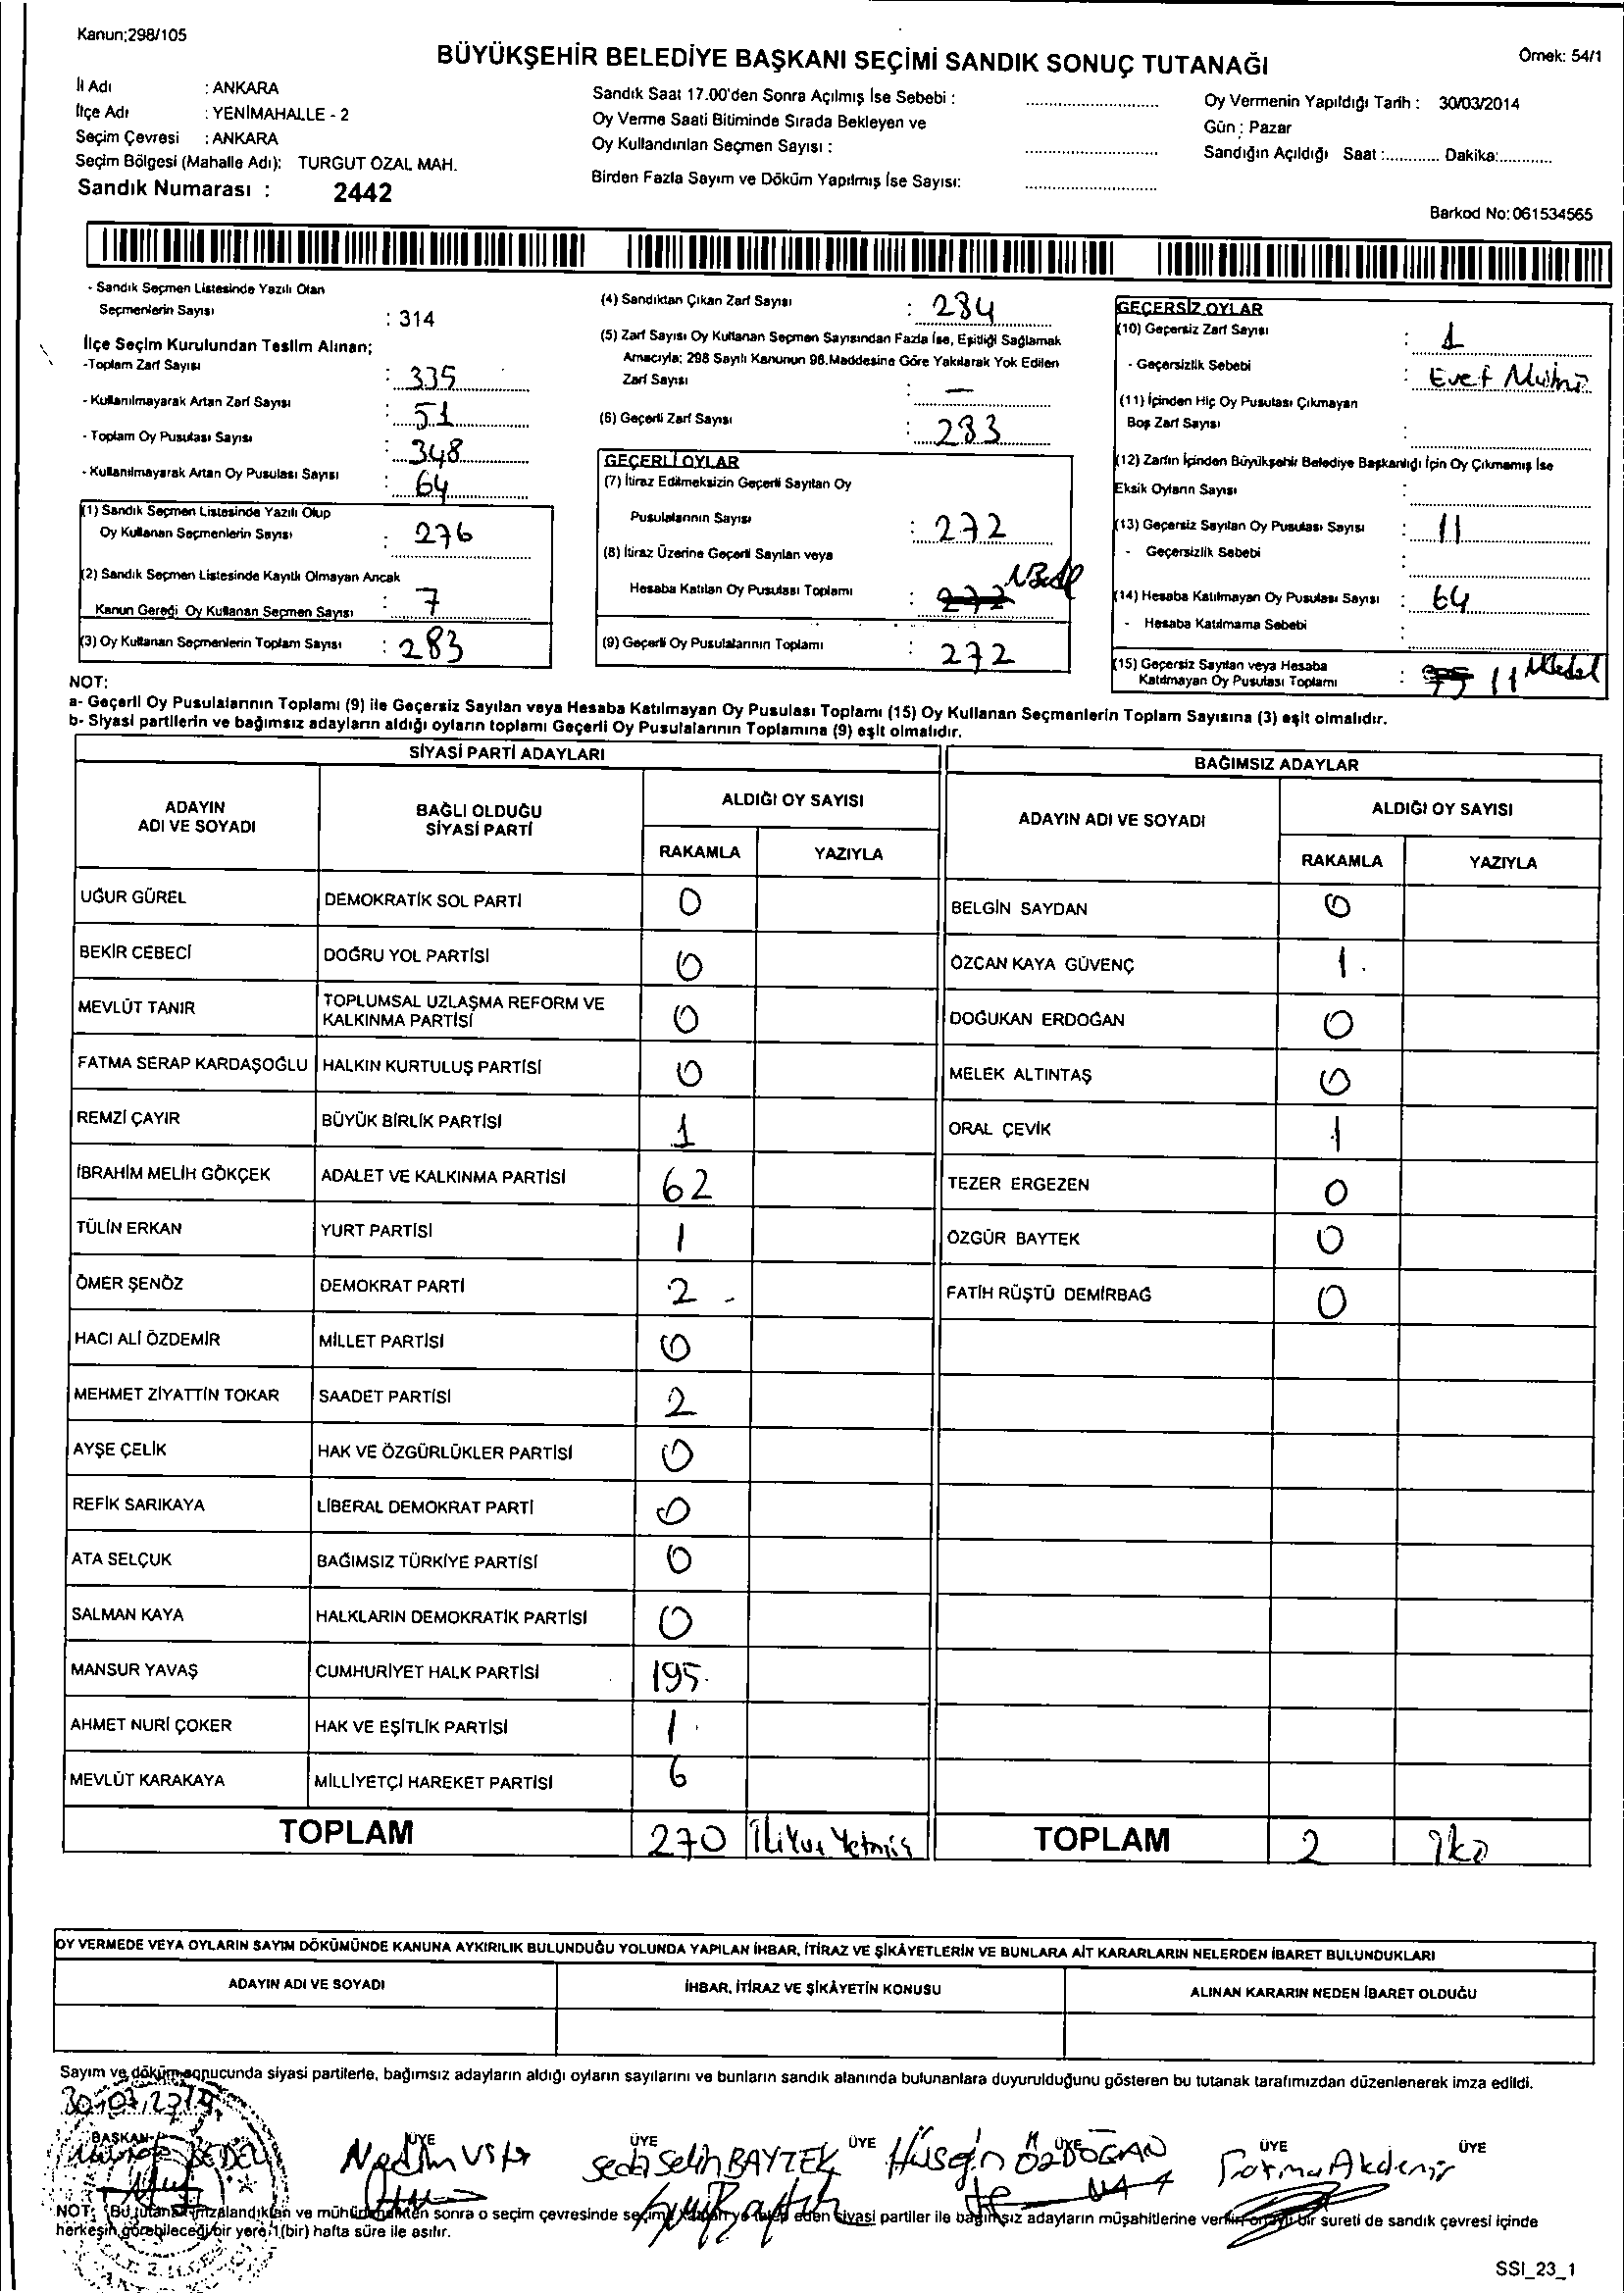 Kanun;298/105
BÜYÜKŞEHİR BELEDİYE BAŞKANI SEÇİMİ SANDIK SONUÇ TUTANAĞI
Örnek: 54/1
İl Adı : ANKARA
İlçe Adı : YENİMAHALLE - 2
Seçim Çevresi : ANKARA
Seçim Bölgesi (Mahalle Adı): TURGUT ÖZAL MAH.
Sandık Numarası : 2442
Sandık Saat 17.00'den Sonra Açılmış İse Sebebi :
Oy Verme Saati Bitiminde Sırada Bekleyen ve
Oy Kullandırılan Seçmen Sayısı :
Birden Fazla Sayım ve Döküm Yapılmış İse Sayısı:
Oy Vermenin Yapıldığı Tarih : 30/03/2014
Gün : Pazar
Sandığın Açıldığı Saat :............ Dakika:............
Barkod No: 061534565
- Sandık Seçmen Listesinde Yazılı Olan
Seçmenlerin Sayısı : 314
İlçe Seçim Kurulundan Teslim Alınan;
-Toplam Zarf Sayısı : 335
- Kullanılmayarak Artan Zarf Sayısı : 51
- Toplam Oy Pusulası Sayısı : 348
- Kullanılmayarak Artan Oy Pusulası Sayısı : 64
(1) Sandık Seçmen Listesinde Yazılı Olup
Oy Kullanan Seçmenlerin Sayısı : 276
(2) Sandık Seçmen Listesinde Kayıtlı Olmayan Ancak
Kanun Gereği Oy Kullanan Seçmen Sayısı : 7
(3) Oy Kullanan Seçmenlerin Toplam Sayısı : 283
(4) Sandıktan Çıkan Zarf Sayısı : 284
(5) Zarf Sayısı Oy Kullanan Seçmen Sayısından Fazla İse, Eşitliği Sağlamak
Amacıyla; 298 Sayılı Kanunun 98.Maddesine Göre Yakılarak Yok Edilen
Zarf Sayısı : —
(6) Geçerli Zarf Sayısı : 283
GEÇERLİ OYLAR
(7) İtiraz Edilmeksizin Geçerli Sayılan Oy
Pusulalarının Sayısı : 272
(8) İtiraz Üzerine Geçerli Sayılan veya
Hesaba Katılan Oy Pusulası Toplamı : 272
(9) Geçerli Oy Pusulalarının Toplamı : 272
GEÇERSİZ OYLAR
(10) Geçersiz Zarf Sayısı : 1
- Geçersizlik Sebebi : Evet Mührü
(11) İçinden Hiç Oy Pusulası Çıkmayan
Boş Zarf Sayısı :
(12) Zarfın İçinden Büyükşehir Belediye Başkanlığı İçin Oy Çıkmamış İse
Eksik Oyların Sayısı :
(13) Geçersiz Sayılan Oy Pusulası Sayısı : 11
- Geçersizlik Sebebi :
(14) Hesaba Katılmayan Oy Pusulası Sayısı : 64
- Hesaba Katılmama Sebebi :
(15) Geçersiz Sayılan veya Hesaba
Katılmayan Oy Pusulası Toplamı : 75 11
NOT:
a- Geçerli Oy Pusulalarının Toplamı (9) ile Geçersiz Sayılan veya Hesaba Katılmayan Oy Pusulası Toplamı (15) Oy Kullanan Seçmenlerin Toplam Sayısına (3) eşit olmalıdır.
b- Siyasi partilerin ve bağımsız adayların aldığı oyların toplamı Geçerli Oy Pusulalarının Toplamına (9) eşit olmalıdır.
SİYASİ PARTİ ADAYLARI
ADAYIN ADI VE SOYADI
BAĞLI OLDUĞU SİYASİ PARTİ
ALDIĞI OY SAYISI
RAKAMLA YAZIYLA
UĞUR GÜREL DEMOKRATİK SOL PARTİ 0
BEKİR CEBECİ DOĞRU YOL PARTİSİ 0
MEVLÜT TANIR TOPLUMSAL UZLAŞMA REFORM VE KALKINMA PARTİSİ 0
FATMA SERAP KARDAŞOĞLU HALKIN KURTULUŞ PARTİSİ 0
REMZİ ÇAYIR BÜYÜK BİRLİK PARTİSİ 1
İBRAHİM MELİH GÖKÇEK ADALET VE KALKINMA PARTİSİ 62
TÜLİN ERKAN YURT PARTİSİ 1
ÖMER ŞENÖZ DEMOKRAT PARTİ 2 -
HACI ALİ ÖZDEMİR MİLLET PARTİSİ 0
MEHMET ZİYATTİN TOKAR SAADET PARTİSİ 2
AYŞE ÇELİK HAK VE ÖZGÜRLÜKLER PARTİSİ 0
REFİK SARIKAYA LİBERAL DEMOKRAT PARTİ 0
ATA SELÇUK BAĞIMSIZ TÜRKİYE PARTİSİ 0
SALMAN KAYA HALKLARIN DEMOKRATİK PARTİSİ 0
MANSUR YAVAŞ CUMHURİYET HALK PARTİSİ 195
AHMET NURİ ÇOKER HAK VE EŞİTLİK PARTİSİ 1
MEVLÜT KARAKAYA MİLLİYETÇİ HAREKET PARTİSİ 6
TOPLAM 270 İkiyüz Yetmiş
BAĞIMSIZ ADAYLAR
ADAYIN ADI VE SOYADI
ALDIĞI OY SAYISI
RAKAMLA YAZIYLA
BELGİN SAYDAN 0
ÖZCAN KAYA GÜVENÇ 1
DOĞUKAN ERDOĞAN 0
MELEK ALTINTAŞ 0
ORAL ÇEVİK 1
TEZER ERGEZEN 0
ÖZGÜR BAYTEK 0
FATİH RÜŞTÜ DEMİRBAĞ 0
TOPLAM 2 İki
OY VERMEDE VEYA OYLARIN SAYIM DÖKÜMÜNDE KANUNA AYKIRILIK BULUNDUĞU YOLUNDA YAPILAN İHBAR, İTİRAZ VE ŞİKÂYETLERİN VE BUNLARA AİT KARARLARIN NELERDEN İBARET BULUNDUKLARI
ADAYIN ADI VE SOYADI İHBAR, İTİRAZ VE ŞİKÂYETİN KONUSU ALINAN KARARIN NEDEN İBARET OLDUĞU
Sayım ve döküm sonucunda siyasi partilerle, bağımsız adayların aldığı oyların sayılarını ve bunların sandık alanında bulunanlara duyurulduğunu gösteren bu tutanak tarafımızdan düzenlenerek imza edildi.
30.03.2014
BAŞKAN ÜYE ÜYE ÜYE ÜYE ÜYE ÜYE
BEDEL Nedim Usta Seda Selin BAYTEK Hüseyin ÖZDOĞAN Fatma Akdeniz
NOT: Bu tutanak imzalandıktan ve mühürlendikten sonra o seçim çevresinde seçime eden siyasi partiler ile bağımsız adayların müşahitlerine bir sureti de sandık çevresi içinde
herkesin görebileceği bir yere 1(bir) hafta süre ile asılır.
SSI_23_1